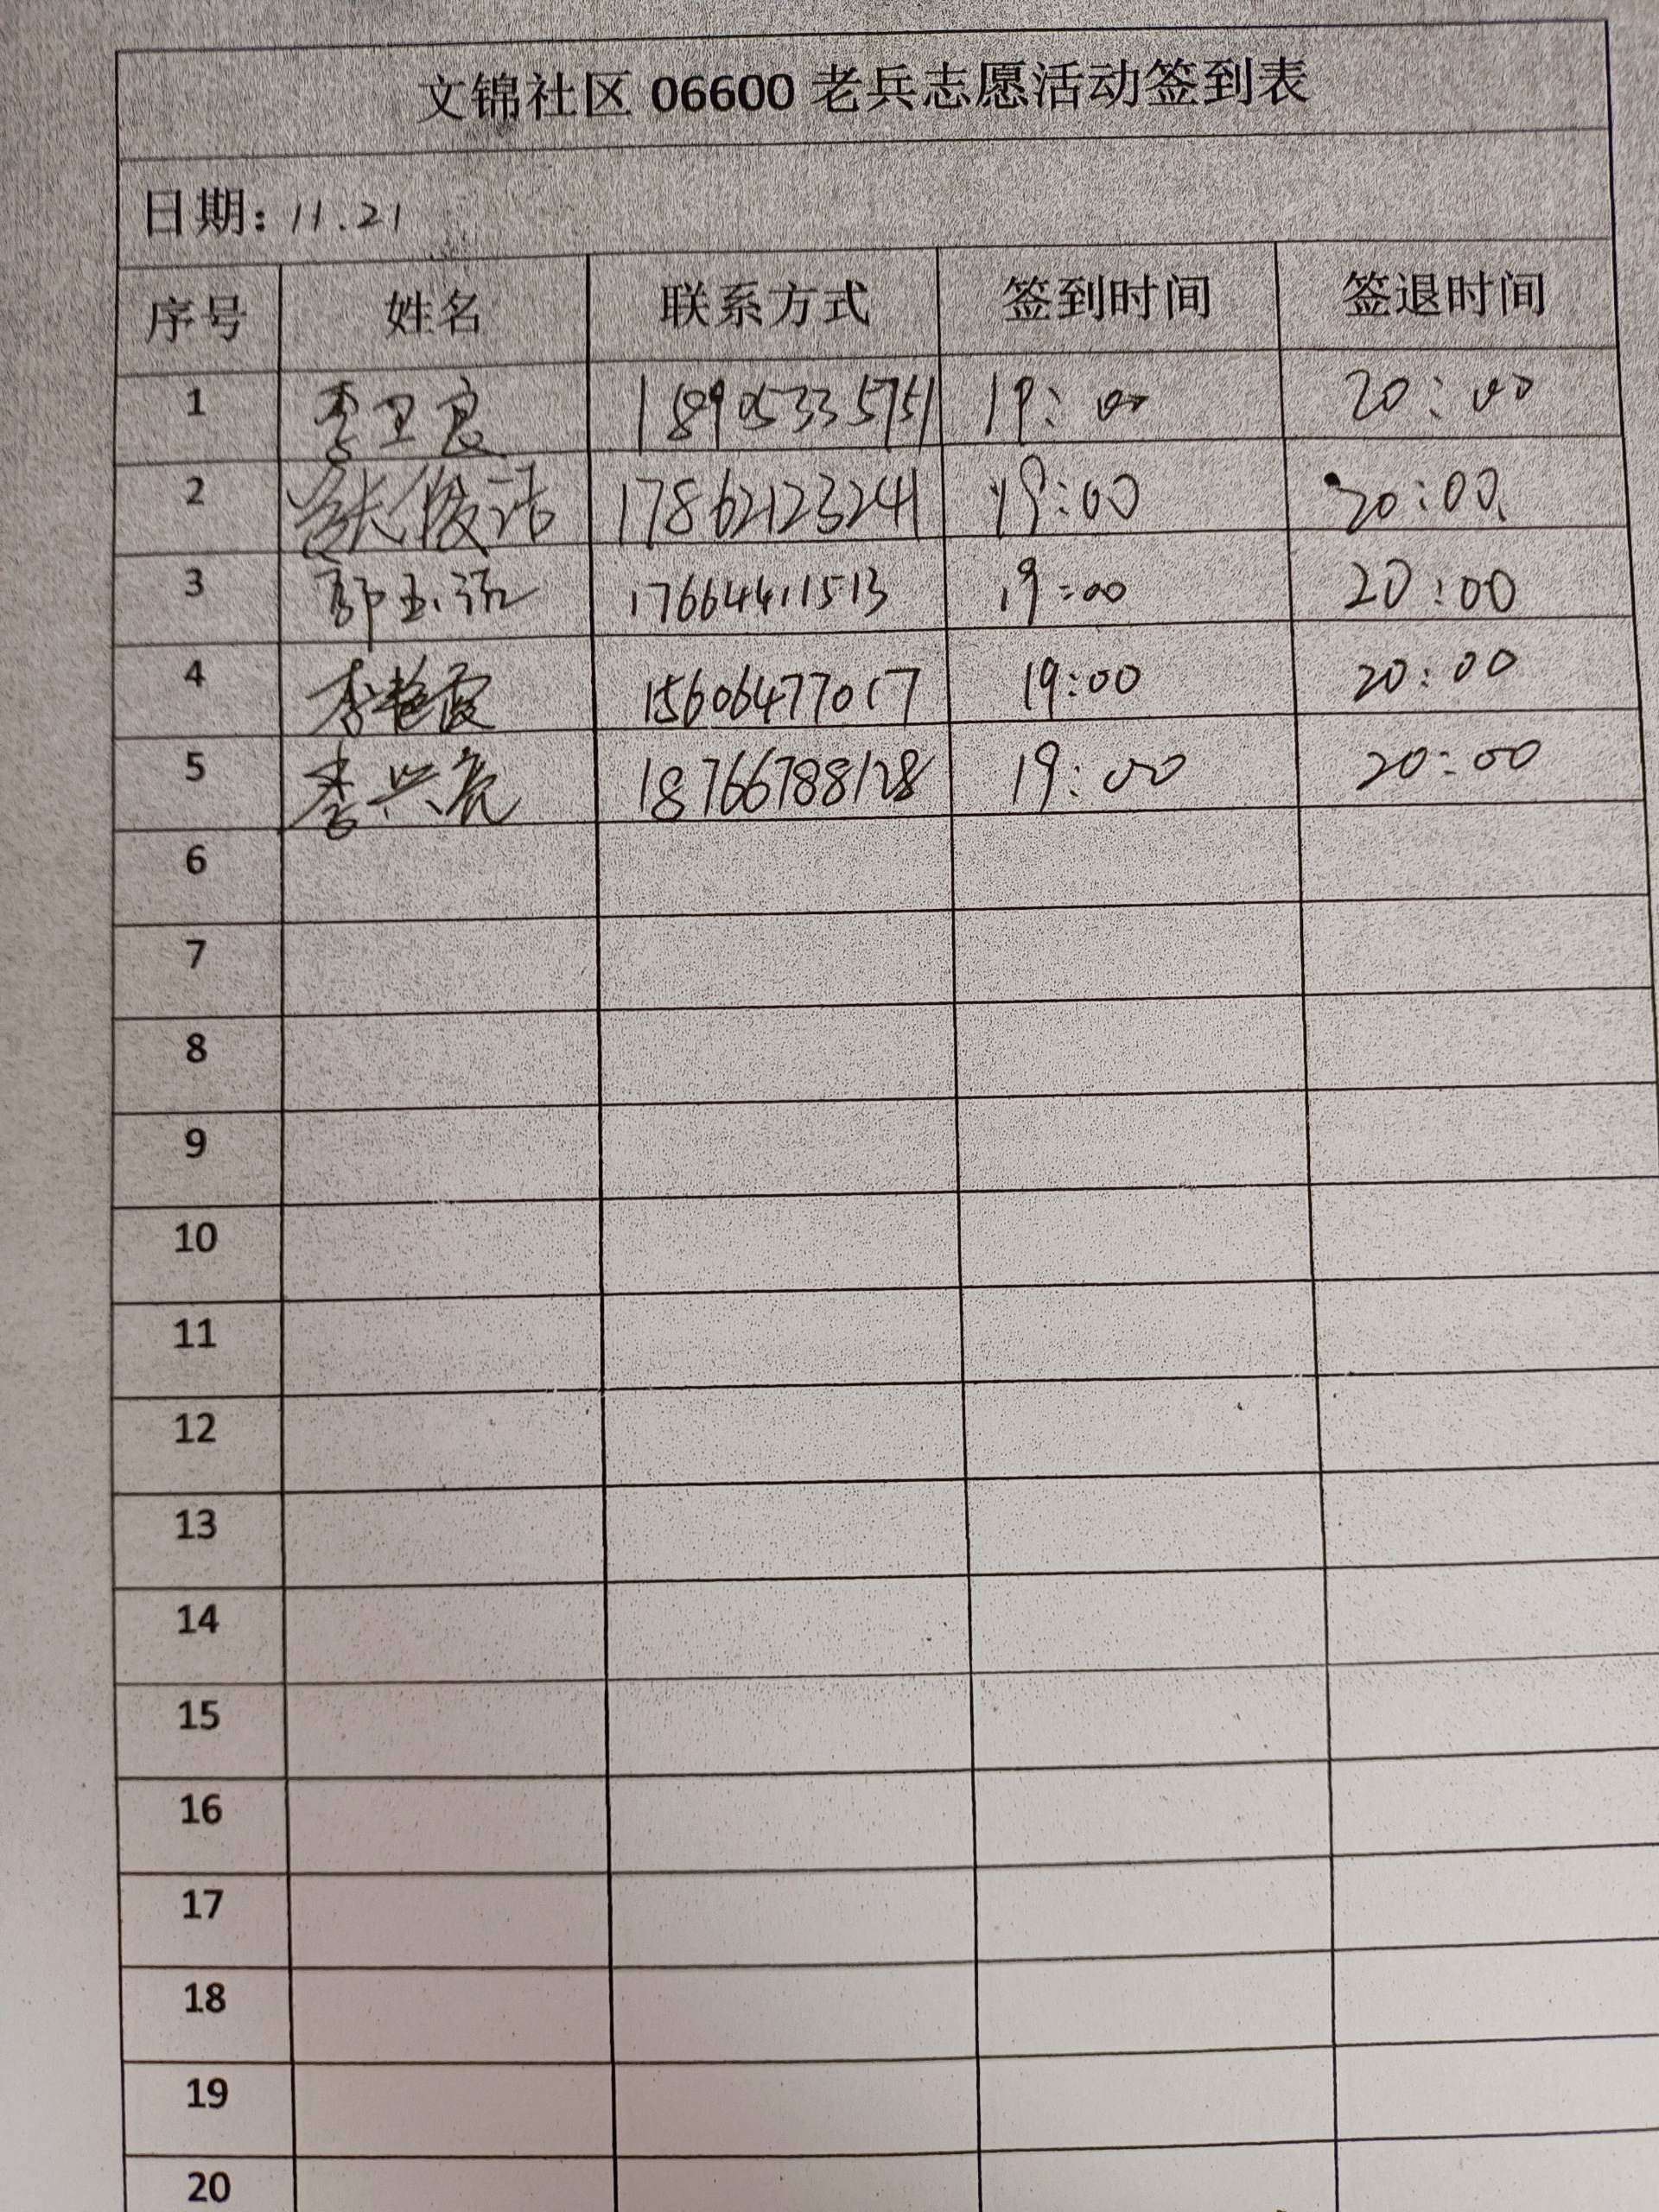 文锦社区 06600 老兵志愿活动签到表
日期: 11.21
序号 姓名 联系方式 签到时间 签退时间
1 李卫良 18905335751 19:00 20:00
2 17862123241 19:00 20:00
3 17664411513 19:00 20:00
4 李艳霞 15606477017 19:00 20:00
5 李兴亮 18766788128 19:00 20:00
6
7
8
9
10
11
12
13
14
15
16
17
18
19
20